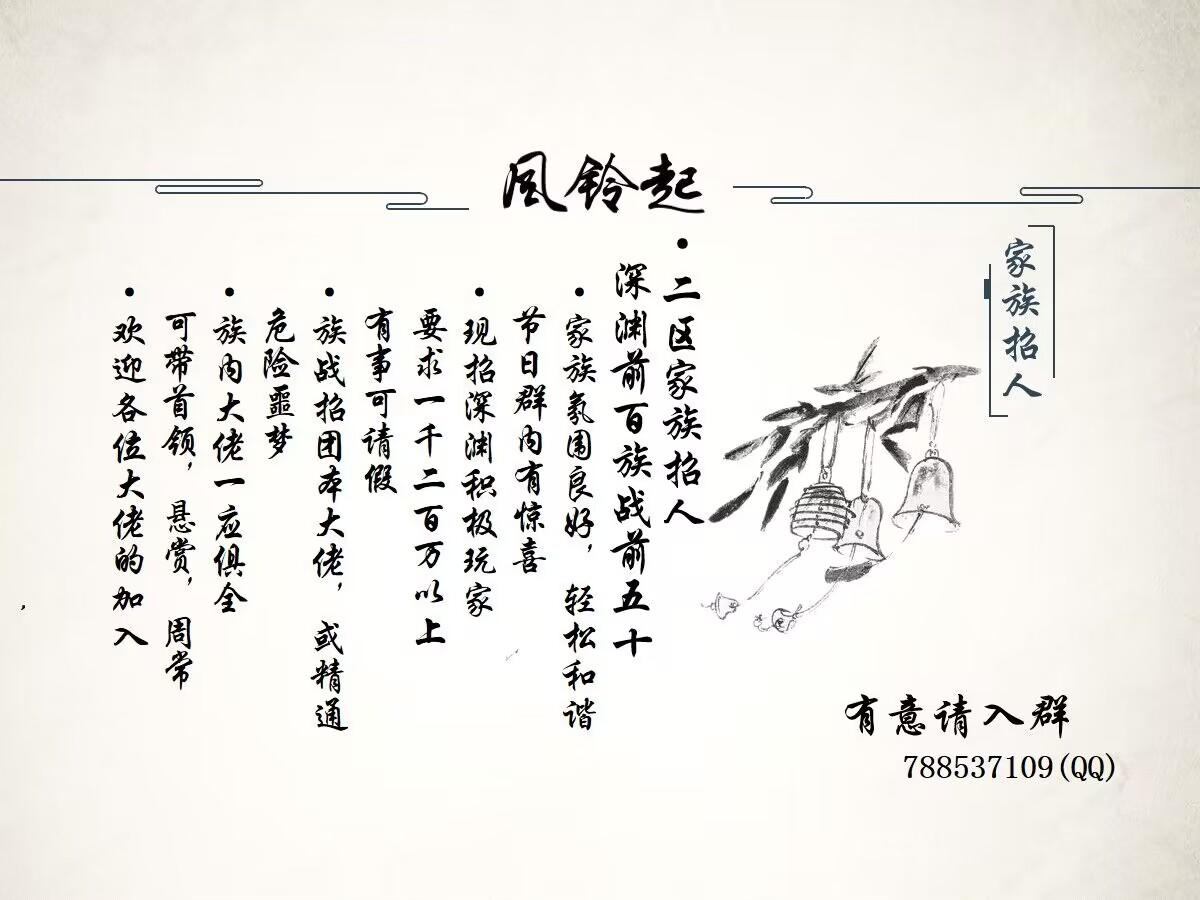 风铃起
家族招人
•二区家族招人
深渊前百族战前五十
•家族氛围良好，轻松和谐
节日群内有惊喜
•现招深渊积极玩家
要求一千二百万以上
有事可请假
•族战招团本大佬，或精通
危险噩梦
•族内大佬一应俱全
可带首领，悬赏，周常
•欢迎各位大佬的加入
有意请入群
788537109(QQ)